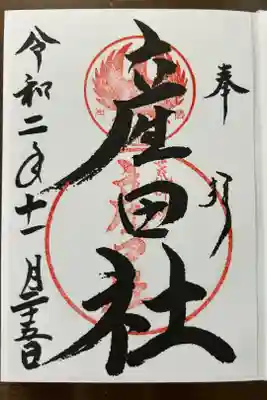 奉拝
産田社
令和二年十一月二十五日